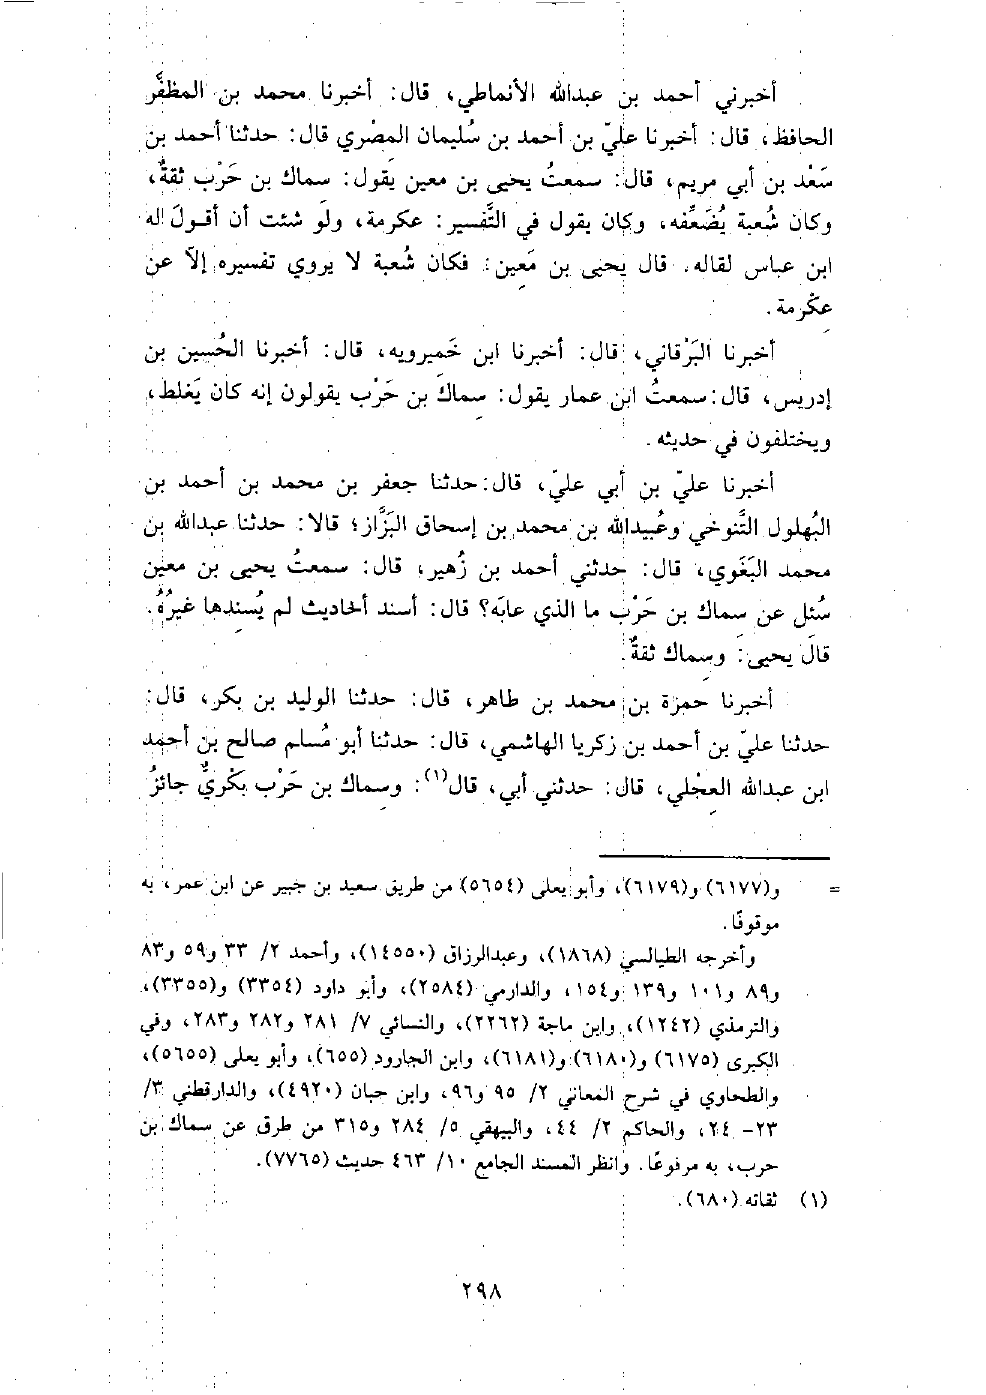 أخبرني أحمد بن عبدالله الأنماطي، قال: أخبرنا محمد بن المظفَّر
الحافظ، قال: أخبرنا عليّ بن أحمد بن سُليمان المصْري قال: حدثنا أحمد بن
سَعْد بن أبي مريم، قال: سمعتُ يحيى بن معين يقول: سماك بن حَرْب ثقةٌ،
وكان شُعبة يُضَعِّفه، وكان يقول في التَّفسير: عكرمة، ولو شئت أن أقولَ له
ابن عباس لقاله. قال يحيى بن مَعِين: فكان شُعبة لا يروي تفسيره إلاّ عن
عكْرِمة.
أخبرنا البَرْقاني، قال: أخبرنا ابن خَميرويه، قال: أخبرنا الحُسين بن
إدريس، قال: سمعتُ ابن عمار يقول: سِماك بن حَرْب يقولون إنه كان يَغلط،
ويختلفون في حديثه.
أخبرنا عليّ بن أبي عليّ، قال: حدثنا جعفر بن محمد بن أحمد بن
البُهلول التَّنوخي وعُبيدالله بن محمد بن إسحاق البَزَّاز؛ قالا: حدثنا عبدالله بن
محمد البَغَوي، قال: حدثني أحمد بن زُهير، قال: سمعتُ يحيى بن معين
سُئل عن سماك بن حَرْب ما الذي عابَه؟ قال: أسند أحاديث لم يُسندها غيرُهُ.
قال يحيى: وسِماك ثقةٌ.
أخبرنا حمزة بن محمد بن طاهر، قال: حدثنا الوليد بن بكر، قال:
حدثنا عليّ بن أحمد بن زكريا الهاشمي، قال: حدثنا أبو مُسلم صالح بن أحمد
ابن عبدالله العِجْلي، قال: حدثني أبي، قال(١): وسماك بن حَرْب بَكْريٌّ جائزُ
= و(٦١٧٧) و(٦١٧٩)، وأبو يعلى (٥٦٥٤) من طريق سعيد بن جبير عن ابن عمر، به
موقوفًا.
وأخرجه الطيالسي (١٨٦٨)، وعبدالرزاق (١٤٥٥٠)، وأحمد ٢/ ٣٣ و٥٩ و٨٣
و٨٩ و١٠١ و١٣٩ و١٥٤، والدارمي (٢٥٨٤)، وأبو داود (٣٣٥٤) و(٣٣٥٥)،
والترمذي (١٢٤٢)، وابن ماجة (٢٢٦٢)، والنسائي ٧/ ٢٨١ و٢٨٢ و٢٨٣، وفي
الكبرى (٦١٧٥) و(٦١٨٠) و(٦١٨١)، وابن الجارود (٦٥٥)، وأبو يعلى (٥٦٥٥)،
والطحاوي في شرح المعاني ٢/ ٩٥ و٩٦، وابن حبان (٤٩٢٠)، والدارقطني ٣/
٢٣- ٢٤، والحاكم ٢/ ٤٤، والبيهقي ٥/ ٢٨٤ و٣١٥ من طرق عن سماك بن
حرب، به مرفوعًا. وانظر المسند الجامع ١٠/ ٤٦٣ حديث (٧٧٦٥).
(١) ثقاته (٦٨٠).
٢٩٨